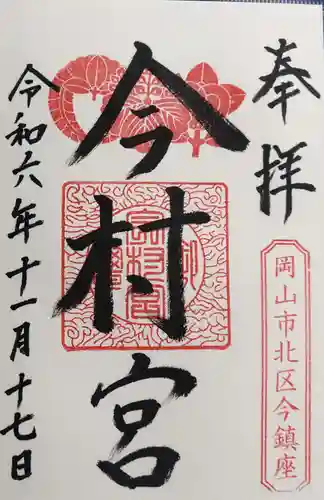 奉拝
岡山市北区今鎮座
今村宮
令和六年十一月十七日